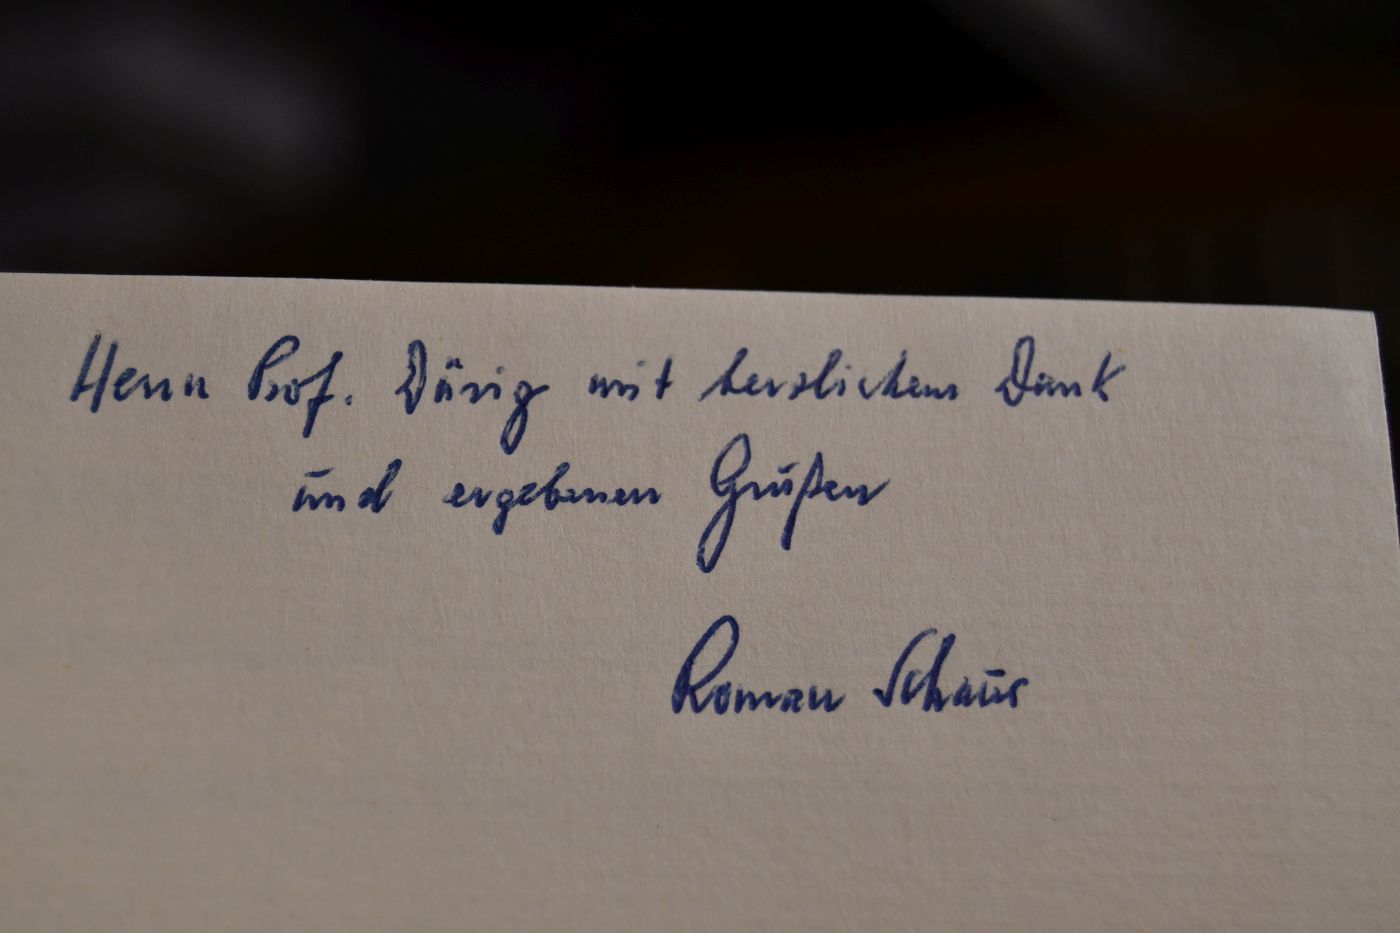 Herrn Prof. Dürig mit herzlichem Dank
und ergebenen Grüßen
Roman Schnur